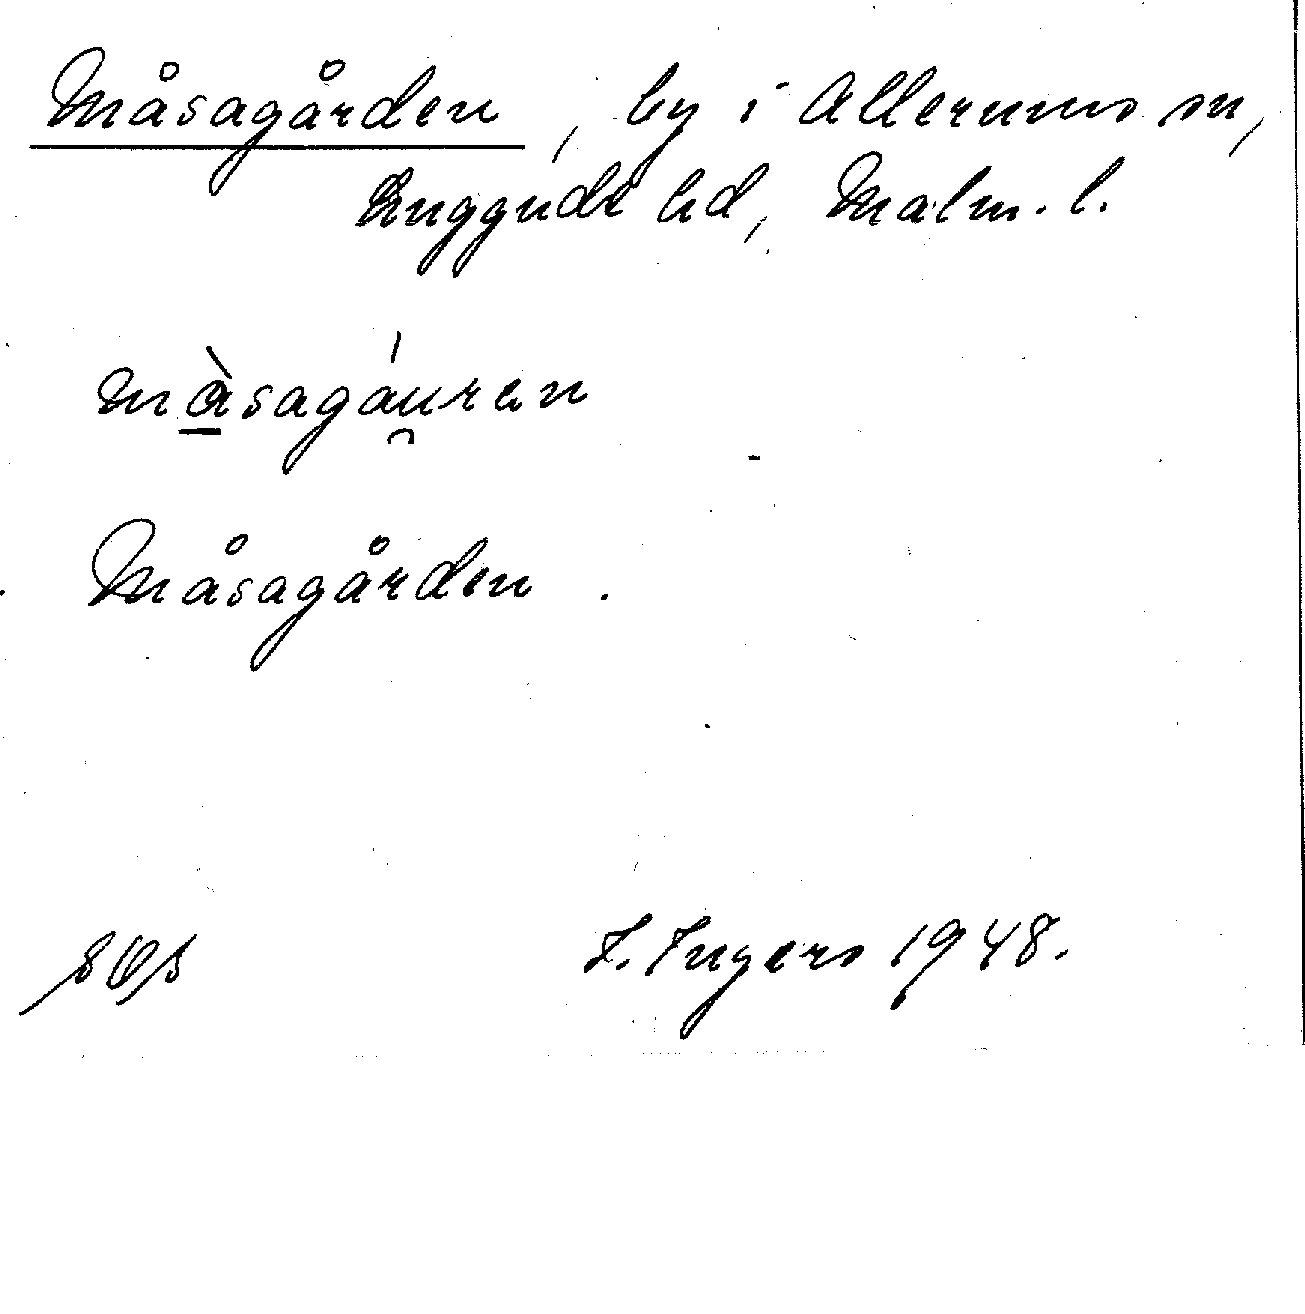 Måsagården, by i Allerums sn,
Luggude hd, Malm. l.
màsagáu̯ren
Måsagården.
I. Ingers 1948.